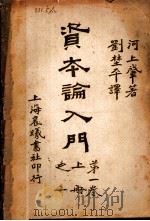 河上肇著
劉埜平譯
資本論入門
第一卷
上册
之一
上海晨曦書社印行